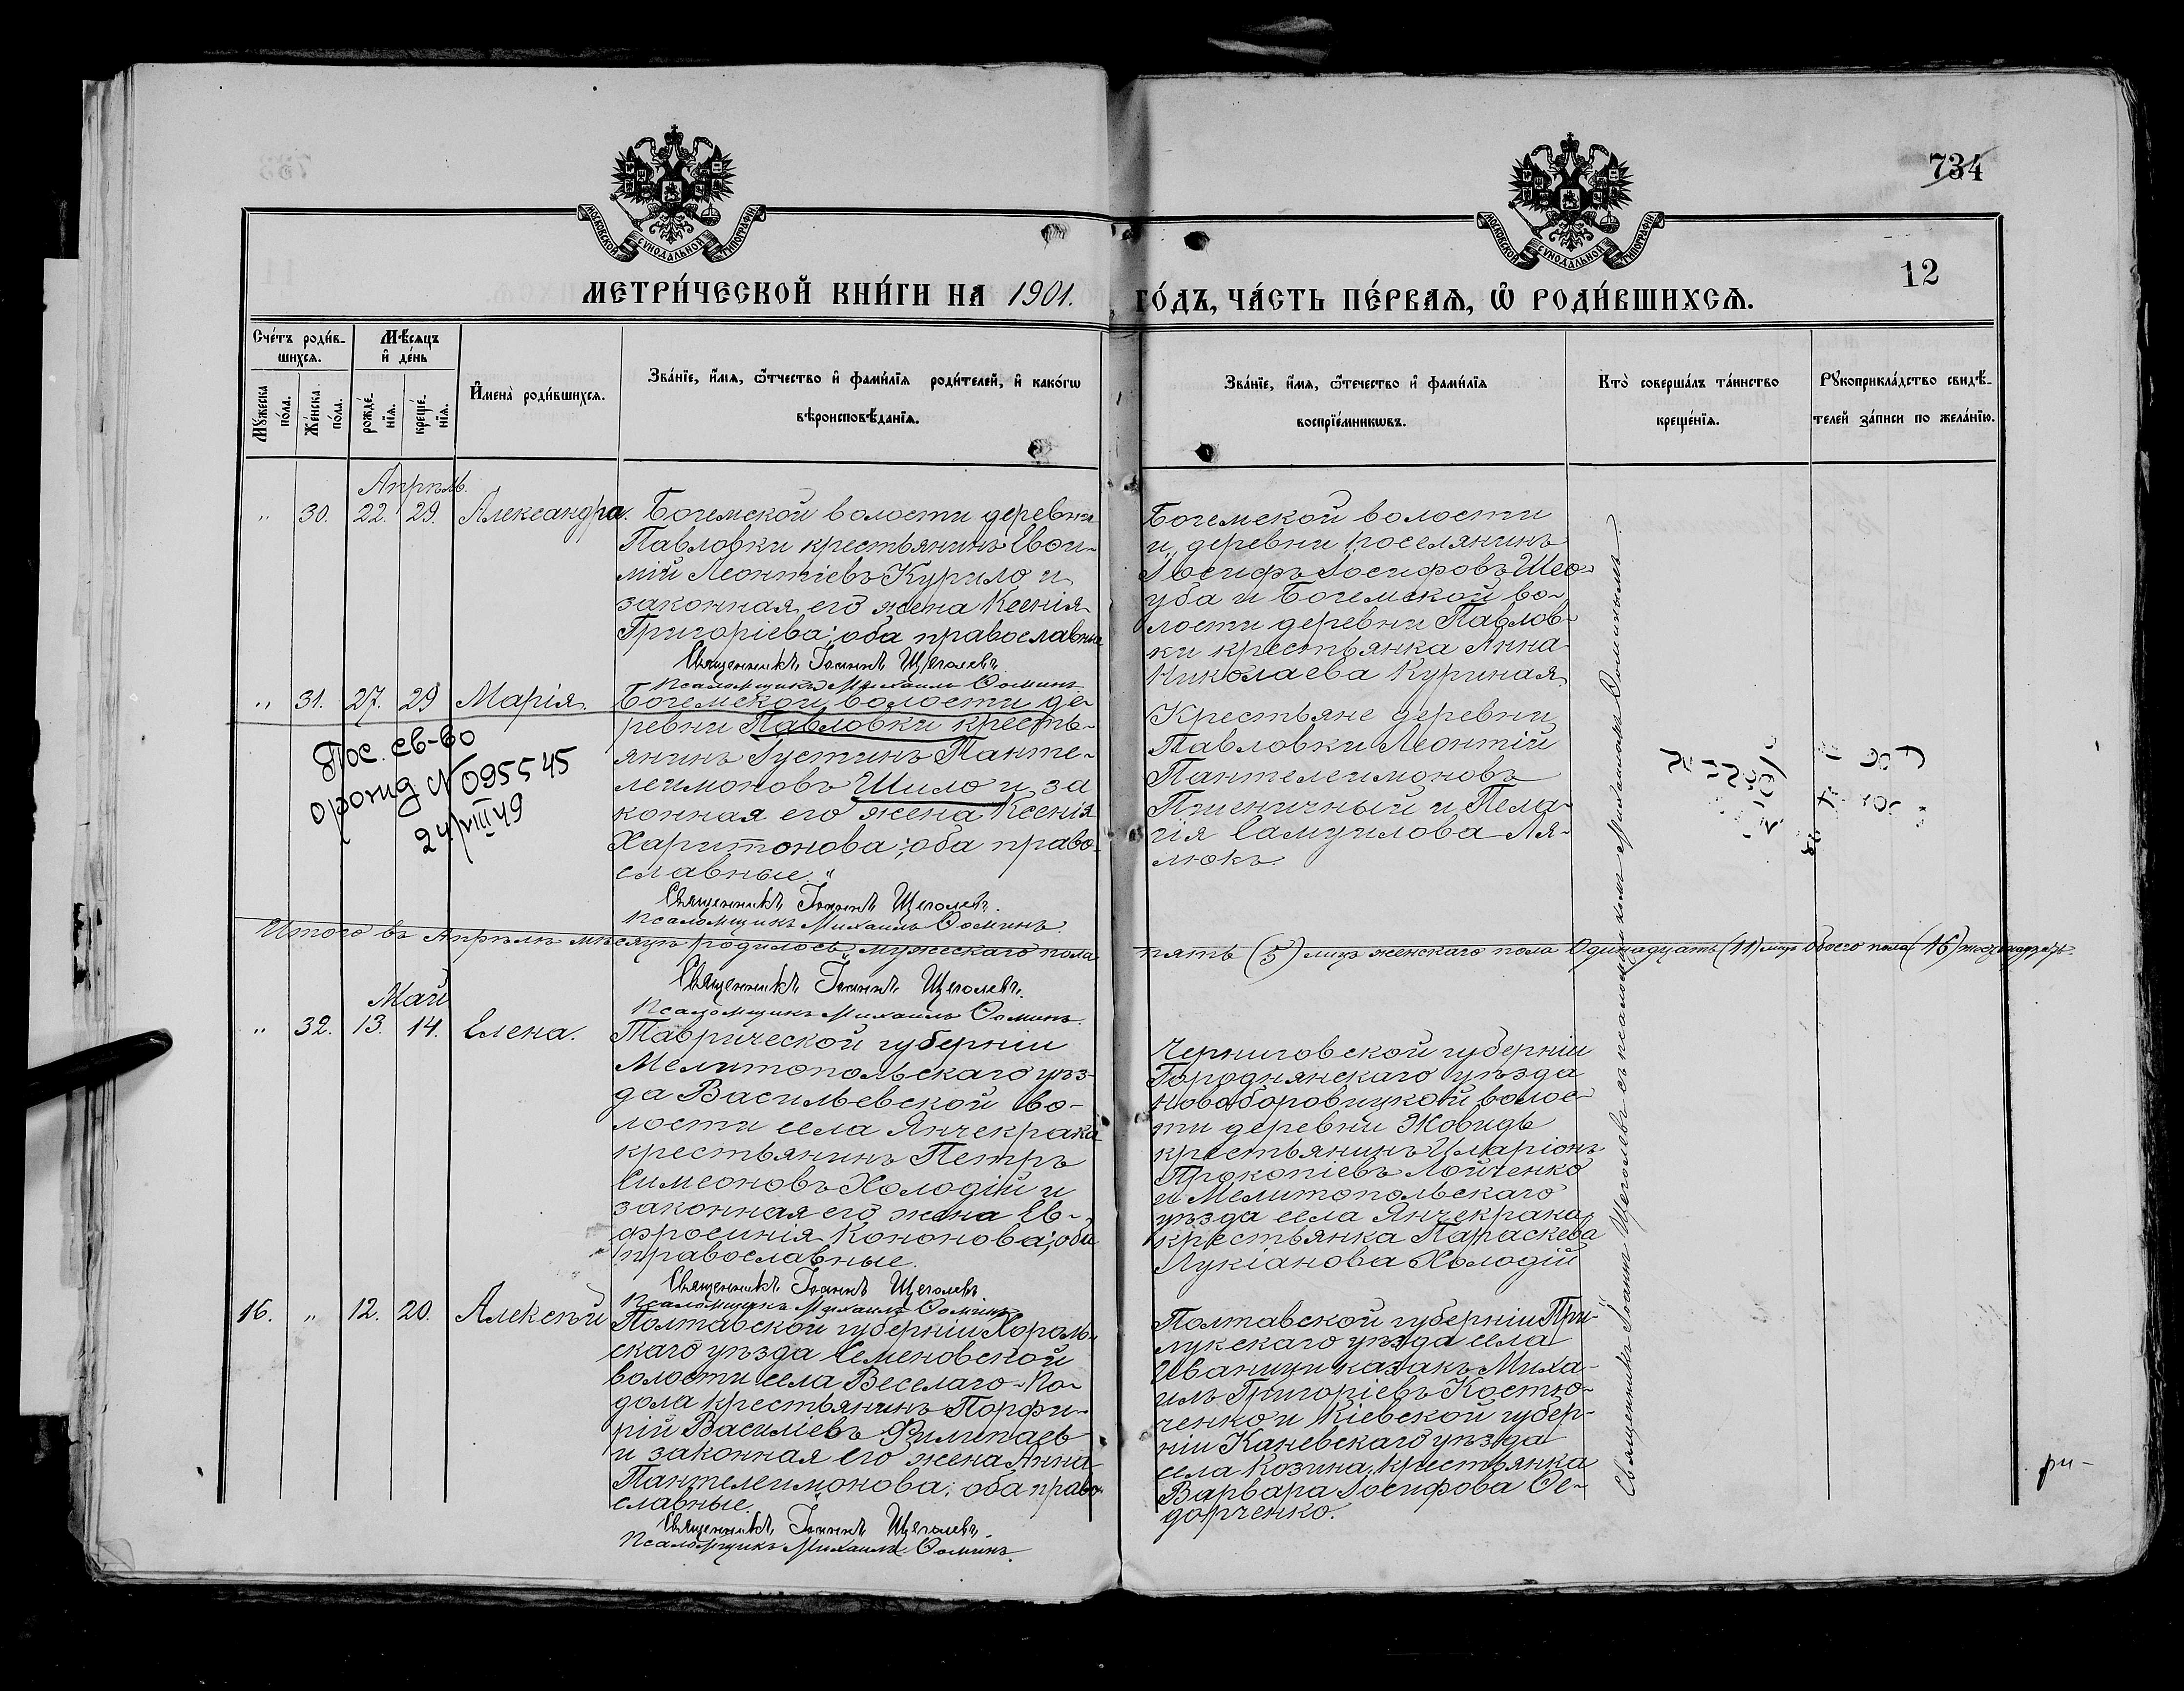 734
12
МОСКОВСКОЙ СѴНОДАЛЬНОЙ ТИПОГРАФІИ
МОСКОВСКОЙ СѴНОДАЛЬНОЙ ТИПОГРАФІИ
МЕТРИ́ЧЕСКОЙ КНИ́ГИ НА 1901.
ГО́ДЪ, ЧА́СТЬ ПЕ́РВАѦ, Ѡ҆ РОДИ́ВШИХСѦ.
Сче́тъ роди́в-
шихсѧ.
Мꙋжеска
по́ла.
Же́нска
по́ла.
Мѣ́сѧцъ
и҆ де́нь
рожде́-
нїѧ.
креще́-
нїѧ.
И҆мена̀ роди́вшихсѧ.
Зва́нїе, и҆́мѧ, ѻ҆́тчество и҆ фами́лїѧ роди́телей, и҆ како́гѡ
вѣроисповѣ́данїѧ.
Зва́нїе, и҆́мѧ, ѻ҆те́чество и҆ фами́лїѧ
воспрїе́мникѡвъ.
Кто̀ соверша́лъ та́инство
креще́нїѧ.
Рꙋкоприкла́дство свидѣ́-
телей за́писи по жела́нїю.
Апрѣль.
" 30. 22. 29. Александра.
Богемской волости деревни
Павловки крестьянинъ Евѳи-
мій Леонтіевъ Курило и
законная его жена Ксенія
Григоріева; оба православные
Священникъ Іоаннъ Щеголевъ.
Псаломщикъ Михаилъ Ѳоминъ.
Богемской волости
и деревни поселянинъ
Іосифъ Іосифовъ Шео-
уба и Богемской во-
лости деревни Павлов-
ки крестьянка Анна
Николаева Куриная
" 31. 27. 29 Марія.
Богемской волости де-
ревни Павловки кресть-
янинъ Іустинъ Панте-
леимоновъ Шило и за
конная его жена Ксенія
Харитонова; оба право-
славные."
Священникъ Іоаннъ Щеголевъ.
Псаломщикъ Михаилъ Ѳоминъ.
св-во
N 095545
24/VIII 49
Крестьяне деревни
Павловки Леонтій
Пантелеимоновъ
Пшеничный и Пела-
гія Самуилова Ля-
люкъ.
Итого въ Апрѣлѣ мѣсяцѣ родилось мужескаго пола
пять (5) лицъ женскаго пола Одинадцать (11) лицъ Обоего пола (16) шестнадцать.
Священникъ Іоаннъ Щеголевъ.
Псаломщикъ Михаилъ Ѳоминъ.
Май
" 32. 13. 14. Елена.
Таврической губерніи
Мелитопольскаго уѣз-
да Васильевской во-
лости села Янчекрака
крестьянинъ Петръ
Симеоновъ Холодій и
законная его жена Ев-
фросинія Кононова; оба
православные.
Священникъ Іоаннъ Щеголевъ.
Псаломщикъ Михаилъ Ѳоминъ.
Черниговской губерніи
Городнянскаго уѣзда
Новоборовицкой волос-
ти деревни Жовидь
крестьянинъ Иларіонъ
Прокопіевъ Лойченко
и Мелитопольскаго
уѣзда села Янчекрака
крестьянка Параскева
Лукіанова Холодій
16. " 12. 20. Алексѣй
Полтавской губерніи Хороль-
скаго уѣзда Семеновской
волости села Веселаго-По-
дола крестьянинъ Порфи-
рій Василіевъ Филипаевъ
и законная его жена Анна
Пантелеимонова; оба право-
славные.
Священникъ Іоаннъ Щеголевъ.
Псаломщикъ Михаилъ Ѳоминъ.
Полтавской губерніи При-
лукскаго уѣзда села
Иваницы казакъ Миха-
илъ Григоріевъ Костю-
ченко и Кіевской губер-
ніи Каневскаго уѣзда
села Козина крестьянка
Варвара Іосифова Ѳе-
дорченко.
Священникъ Іоаннъ Щеголевъ съ псаломщикомъ Михаиломъ Ѳоминымъ.
ри-